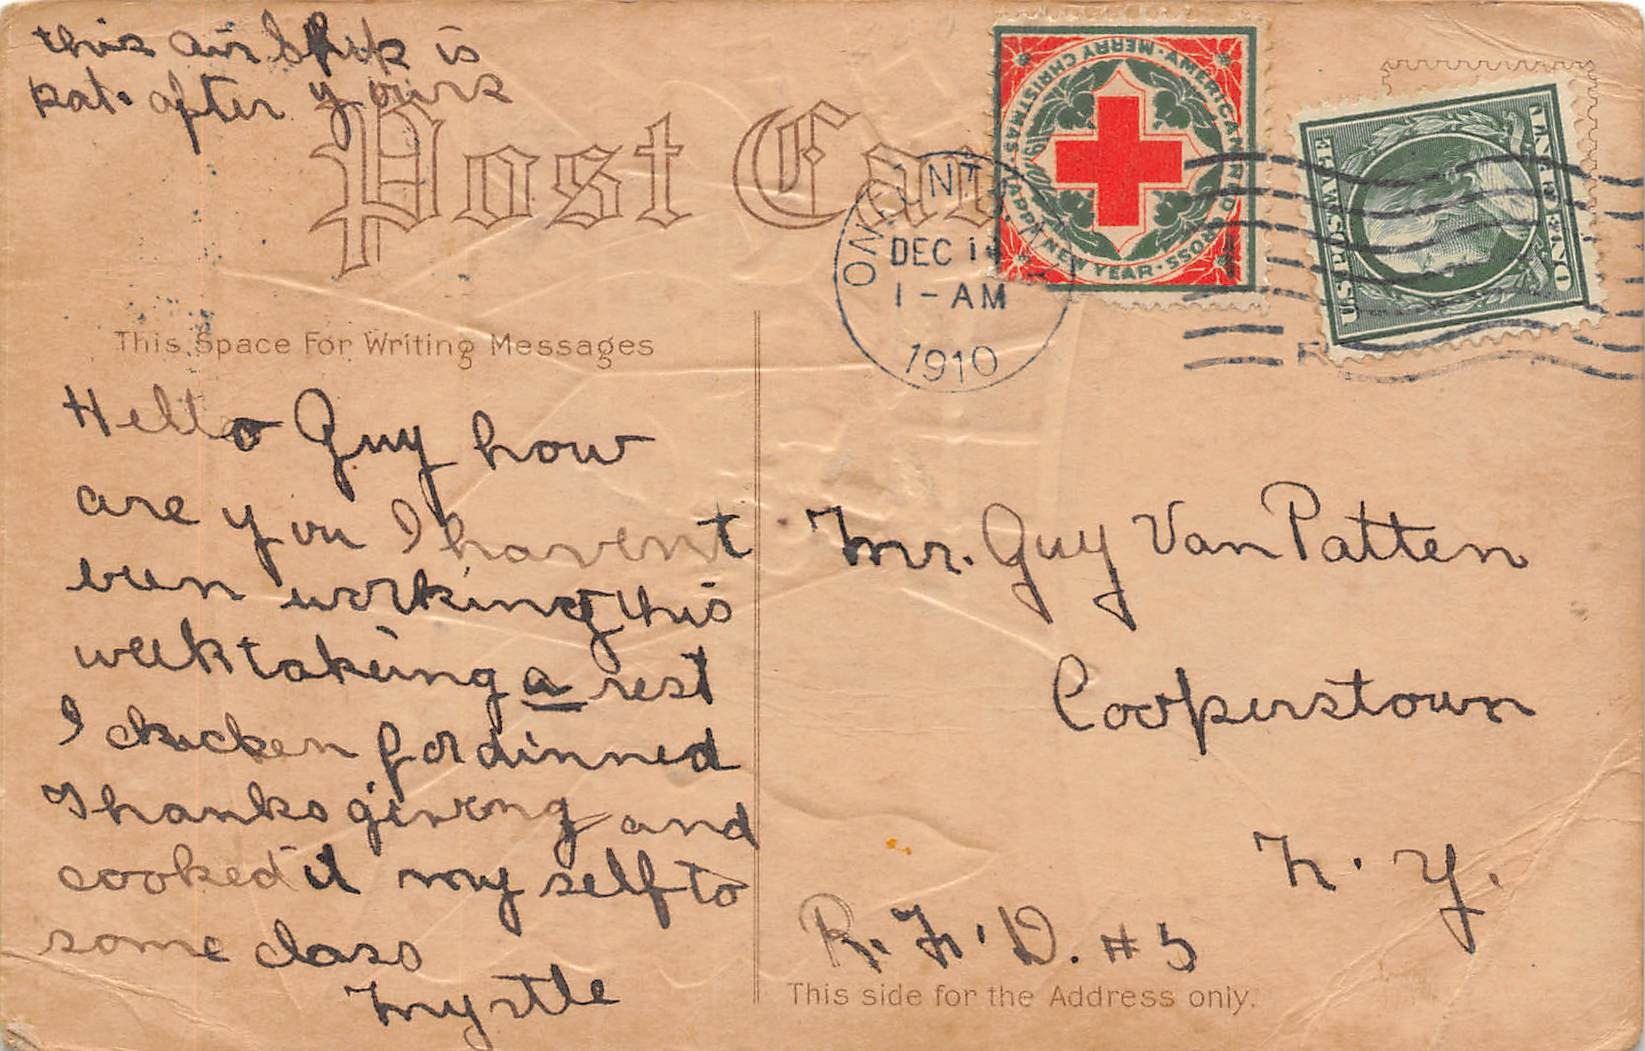 this air is
after yours
Post Car
AMERICAN RED CROSS
MERRY CHRISTMAS · HAPPY NEW YEAR ·
ONE U NT
DEC 1
1-AM
1910
This Space For Writing Messages
Hello Guy how
are you I havent
been working this
week takeing a rest
I chicken for dinned
Thanksgiving and
cooked it my self to
some class
Myrtle
Mr. Guy Van Patten
Cooperstown
N. Y.
R. F. D. # 5
This side for the Address only.